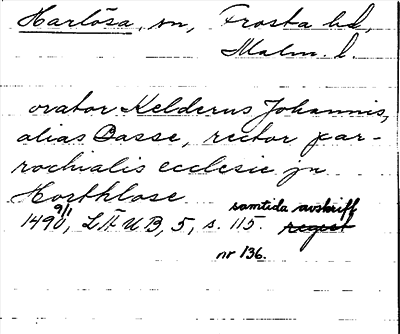 Harlösa, sn, Frosta hd,
Malm. l.
orator Kelderus Johannis,
alias Basse, rector par-
rochialis ecclesie jn
Horthlose
1490 9/1, LÄUB, 5, s. 115. samtida avskrift
regest
nr 136.